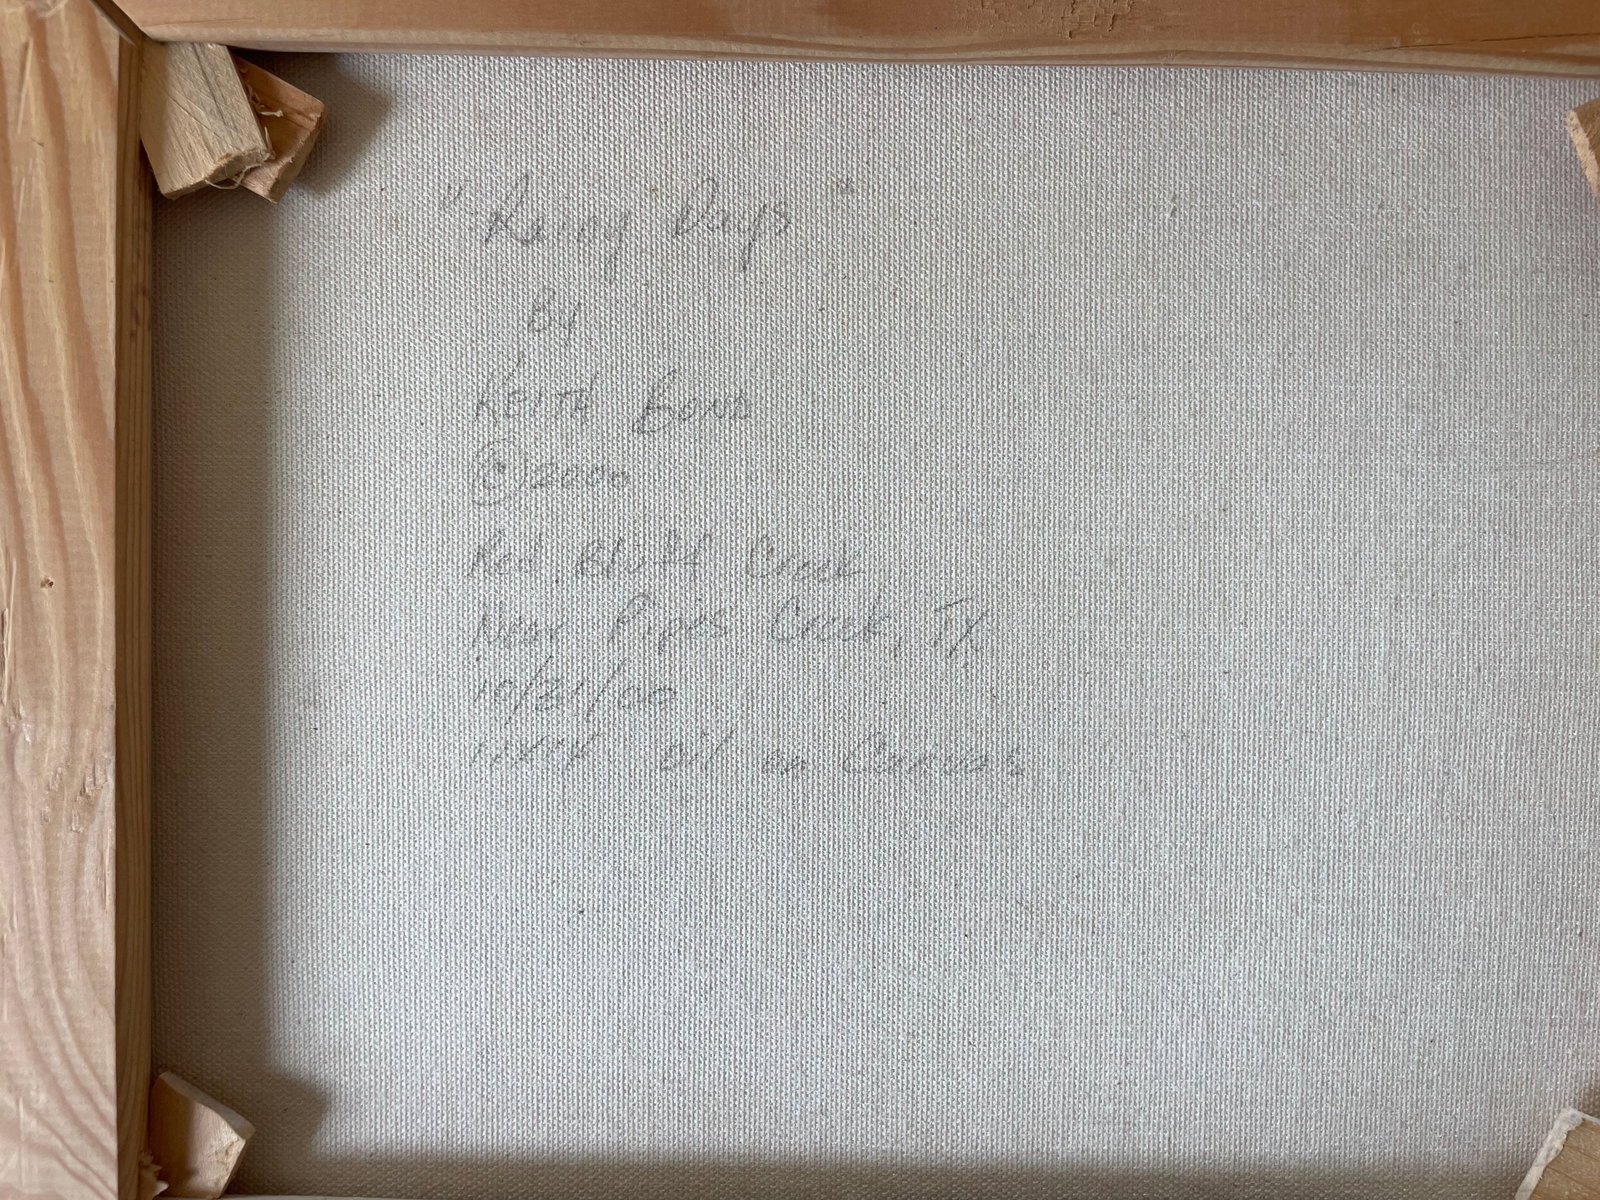 "Rainy Days"
By
Keith Bond
© 2000
Red Bluff Creek
Near Pipes Creek, TX
10/31/00
11x14 Oil on Canvas